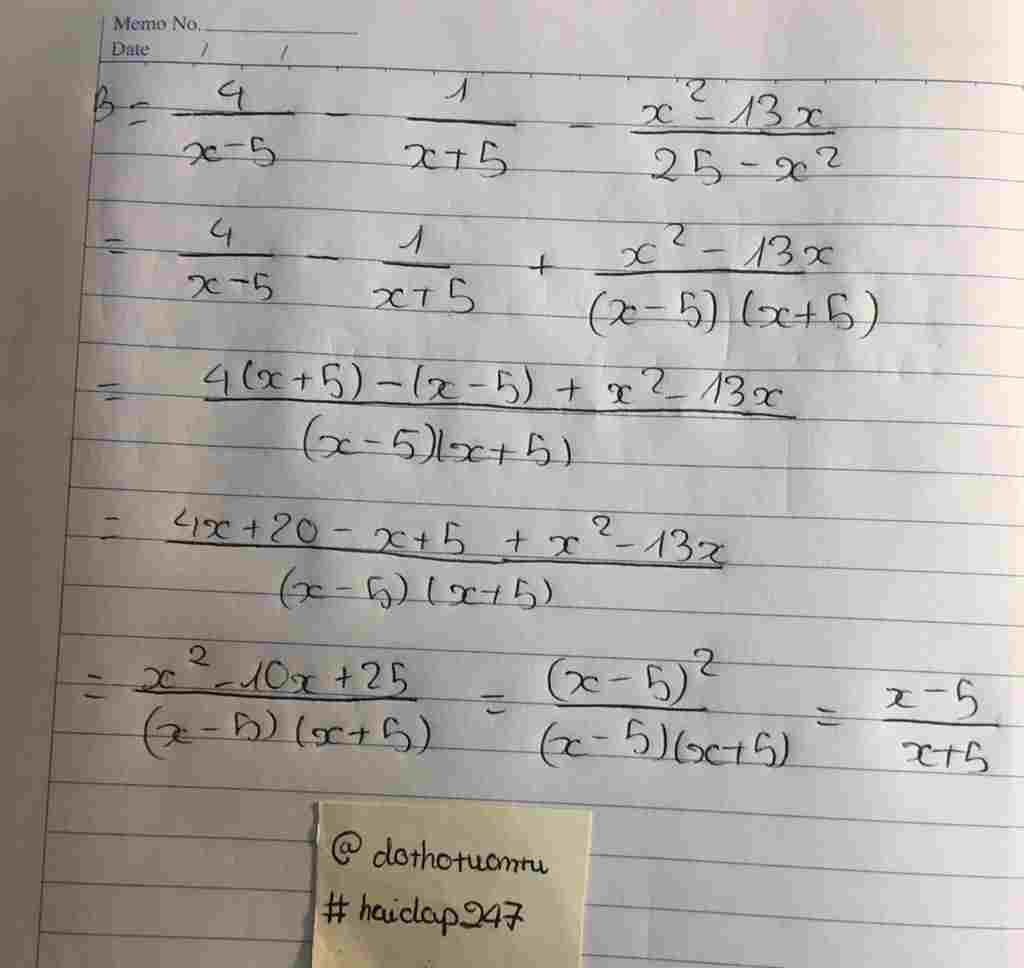 Memo No.
Date / /
B = \frac{4}{x-5} - \frac{1}{x+5} - \frac{x^2-13x}{25-x^2}
= \frac{4}{x-5} - \frac{1}{x+5} + \frac{x^2-13x}{(x-5)(x+5)}
= \frac{4(x+5)-(x-5)+x^2-13x}{(x-5)(x+5)}
= \frac{4x+20-x+5+x^2-13x}{(x-5)(x+5)}
= \frac{x^2-10x+25}{(x-5)(x+5)} = \frac{(x-5)^2}{(x-5)(x+5)} = \frac{x-5}{x+5}
@ dothotuomtu
# hoidap247